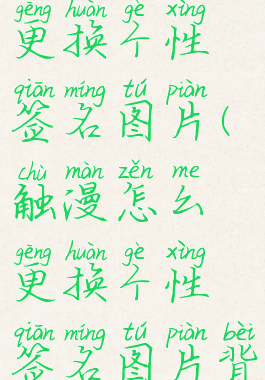 gēng huàn gè xìng
更换个性
qiān míng tú piàn
签名图片(
chù màn zěn me
触漫怎么
gēng huàn gè xìng
更换个性
qiān míng tú piàn bèi
签名图片背